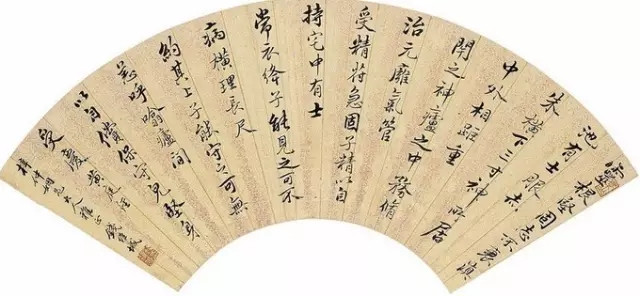 靈根堅固志不衰
池有士服赤
朱橫下三寸神所居
中外相距重
閉之神廬之中務脩
治元膺氣管
受精符急固子精以自
持宅中有士
常衣絳子能見之可不
病橫理長尺
約其上子能守之可無
恙呼翕廬間
以自償保守完堅身
受慶 黃庭
仲姻兄大人雅正